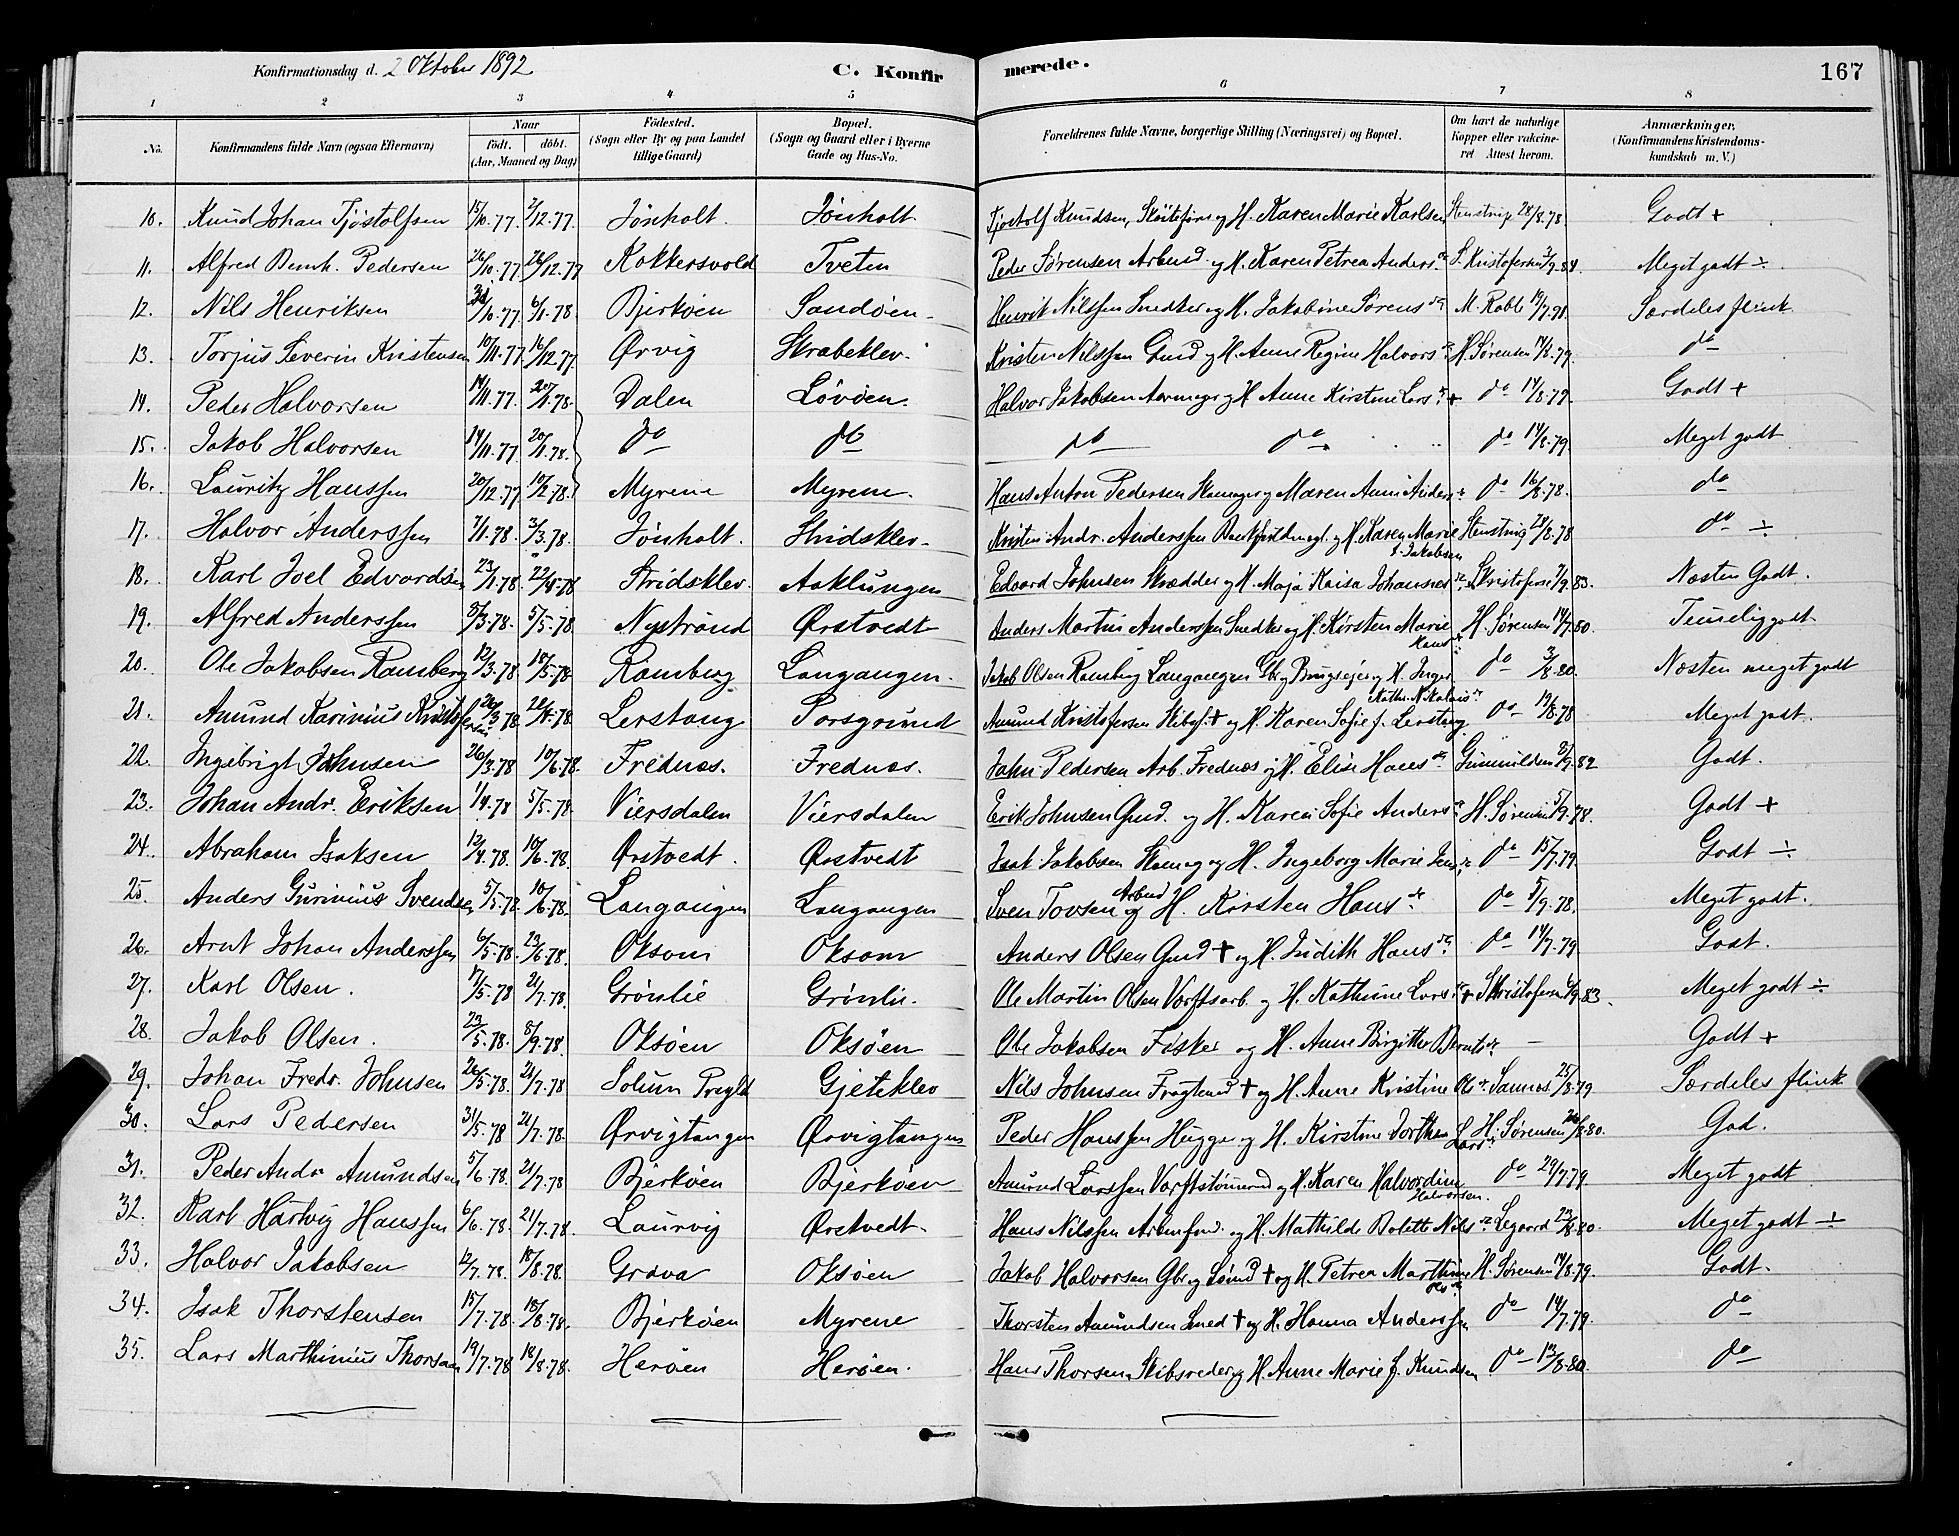 Konfirmationsdag d. 2 Oktober 1892 C. Konfir merede. 167
1 2 3 4 5 6 7 8
No. Konfirmandens fulde Navn (ogsaa Efternavn) Naar födt. döbt. (Aar, Maaned og Dag) Födested. (Sogn eller By og paa Landet tillige Gaard) Bopæl. (Sogn og Gaard eller i Byerne Gade og Hus-No. Forældrenes fulde Navne, borgerlige Stilling (Næringsvei) og Bopæl. Om havt de naturlige Kopper eller vakcineret Attest herom. Anmærkninger, (Konfirmandens Kristendomskundskab m. V.)
10. Knud Johan Tjøstolfsen 15/10.77. 2/12.77. Jönholt. Jönholt Tjøstolf Knudsen, og H. Karen Marie Karlsen Stenstrup 28/8.78 Godt +
11. Alfred Bernh. Pedersen 26/10.77 26/12.77 Kokkersvold Tveten Peder Sørensen Arbmd. og H. Karen Petrea Anders dr S. Kristofersen 3/9.84 Meget godt ÷
12. Nils Henriksen 31/10.77 6/1.78 Bjerköen Sandöen Henrik Nilssen Snedker og H. Jakobine Sørens dr M. Rabb 19/7.78 Særdeles flink
13. Torjus Severin Kristensen 10/11.77 16/12.77 Ørvig Skrabeklev Kristen Nilssen Gmd og H. Anne Regine Halvors dr H. Sørensen 14/8.79 do
14. Peder Halvorsen 14/11.77. 20/1.78. Dalen Lövöen. Halvor Jakobsen og H Anne Kirstine Lars dr + do 14/8.79. Godt +
15. Jakob Halvorsen 14/11.77 20/1.78. do do do do do 14/8.79 Meget godt
16. Lauritz Hanssen 20/12.77 10/2.78. Myrene Myrene. Hans Anton Pedersen Skomager og Maren Anne Anders dr do 16/8.78. do
17. Halvor Anderssen 7/1.78 3/3.78. Jönholt. Stridsklev Kristen Andr. Anderssen og H. Karen Marie f. Jakobsen Stenstrup 28/8.78 do ÷
18. Karl Joel Edvardsen 23/1.78 22/4.78 Stridsklev. Aaklungen Edvard Johnsen Skrædder og H. Maja Kaisa Johannes dr S. Kristofersen 7/9.83. Næsten Godt.
19. Alfred Anderssen 5/3.78. 5/5.78 Nystrand Ørstvedt Anders Martin Anderssen Snedker og H. Kirsten Marie Hans dr H. Sørensen 14/7.80. Temelig godt
20. Ole Jakobsen Ramberg 12/3.78 18/5.78 Ramberg Langangen. Jakob Olsen Ramberg Langangen Gbr og Brugsejer og H. Inger Kathr. Nikolais dr do 3/8.80. Næsten meget godt
21. Amund Karinius Kristofersen 20/3.78 22/4.78 Lerstang Porsgrund Amund Kristofersen Skibsf. + og H. Karen Sofie f. Lerstang do 19/8.78 Meget godt.
22. Ingebrigt Johnsen 26/3.78 10/6.78. Frednæs. Frednæs. John Pedersen Arb. Frednæs og H. Elise Hans dr Gunnulden 2/9.82 Godt.
23. Johan Andr. Eriksen 1/4.78 5/5.78. Viersdalen Viersdalen Erik Johnsen Gmd. og H. Karen Sofie Anders dr H. Sørensen 5/9.78. Godt +
24. Abraham Isaksen 13/4.78. 10/6.78. Ørstvedt. Ørstvedt Isak Jakobsen Skomag og H. Ingeborg Marie Jens dr do 15/7.79. Godt ÷
25. Anders Gurinius Svendsen 5/5.78. 10/6.78. Langangen Langangen Sven Tovsen Arbmd og H. Kirsten Hans dr do 5/9.78. Meget godt.
26. Arnt Johan Anderssen 6/5.78 23/6.78. Oksom Oksom Anders Olsen Gmd + og H. Judith Hans dr do 14/7.79 Godt.
27. Karl Olsen. 17/5.78 21/7.78. Grönlie Grönlie. Ole Martin Olsen Værftsarb. og H. Kathrine Lars dr + S. Kristofersen 6/9.83. Meget godt ÷
28. Jakob Olsen. 23/5.78. 8/9.78. Oksöen Oksöen Ole Jakobsen Fisker og H. Anne Birgitte Bernts dr — Godt +
29. Johan Fredr. Johnsen 26/5.78. 21/7.78 Solum Gjeteklev Nils Johnsen + og H. Anne Kristine Ols dr Sannæs. 25/8.79 Særdeles flink
30. Lars Pedersen 31/5.78 21/7.78. Ørvigtangen Ørvigtangen Peder Hanssen Hugger og H. Kirstine Dorthea Lars dr H. Sørensen 26/8.80. God.
31. Peder Andr Amundsen 5/6.78. 21/7.78 Bjerköen Bjerköen Amund Larssen Værftstømmermd og H. Karen Halvordine Halvorsen. do 29/7.79 Meget godt
32. Karl Hartvig Hanssen 6/6.78. 21/7.78. Laurvig Ørstvedt Hans Nilssen og H. Mathilde Bolette Nils dr Legaard 23/8.80. Meget godt ÷
33. Halvor Jakobsen 12/7.78. 18/8.78. Grava Oksöen Jakob Halvorsen Gbr og Sömd + og H. Petrea Marthine Ols dr H. Sørensen 14/8.79. Godt.
34. Isak Thorstensen 15/7.78. 18/8.78. Bjerköen Myrene Thorsten Amundsen Smed + og H. Hanna Anderssen do 14/7.79. do
35. Lars Marthinius Thorsen 19/7.78 18/8.78. Heröen Heröen. Hans Thorsen Skibsreder og H. Anne Marie f. Knudsen do 13/8.80. do